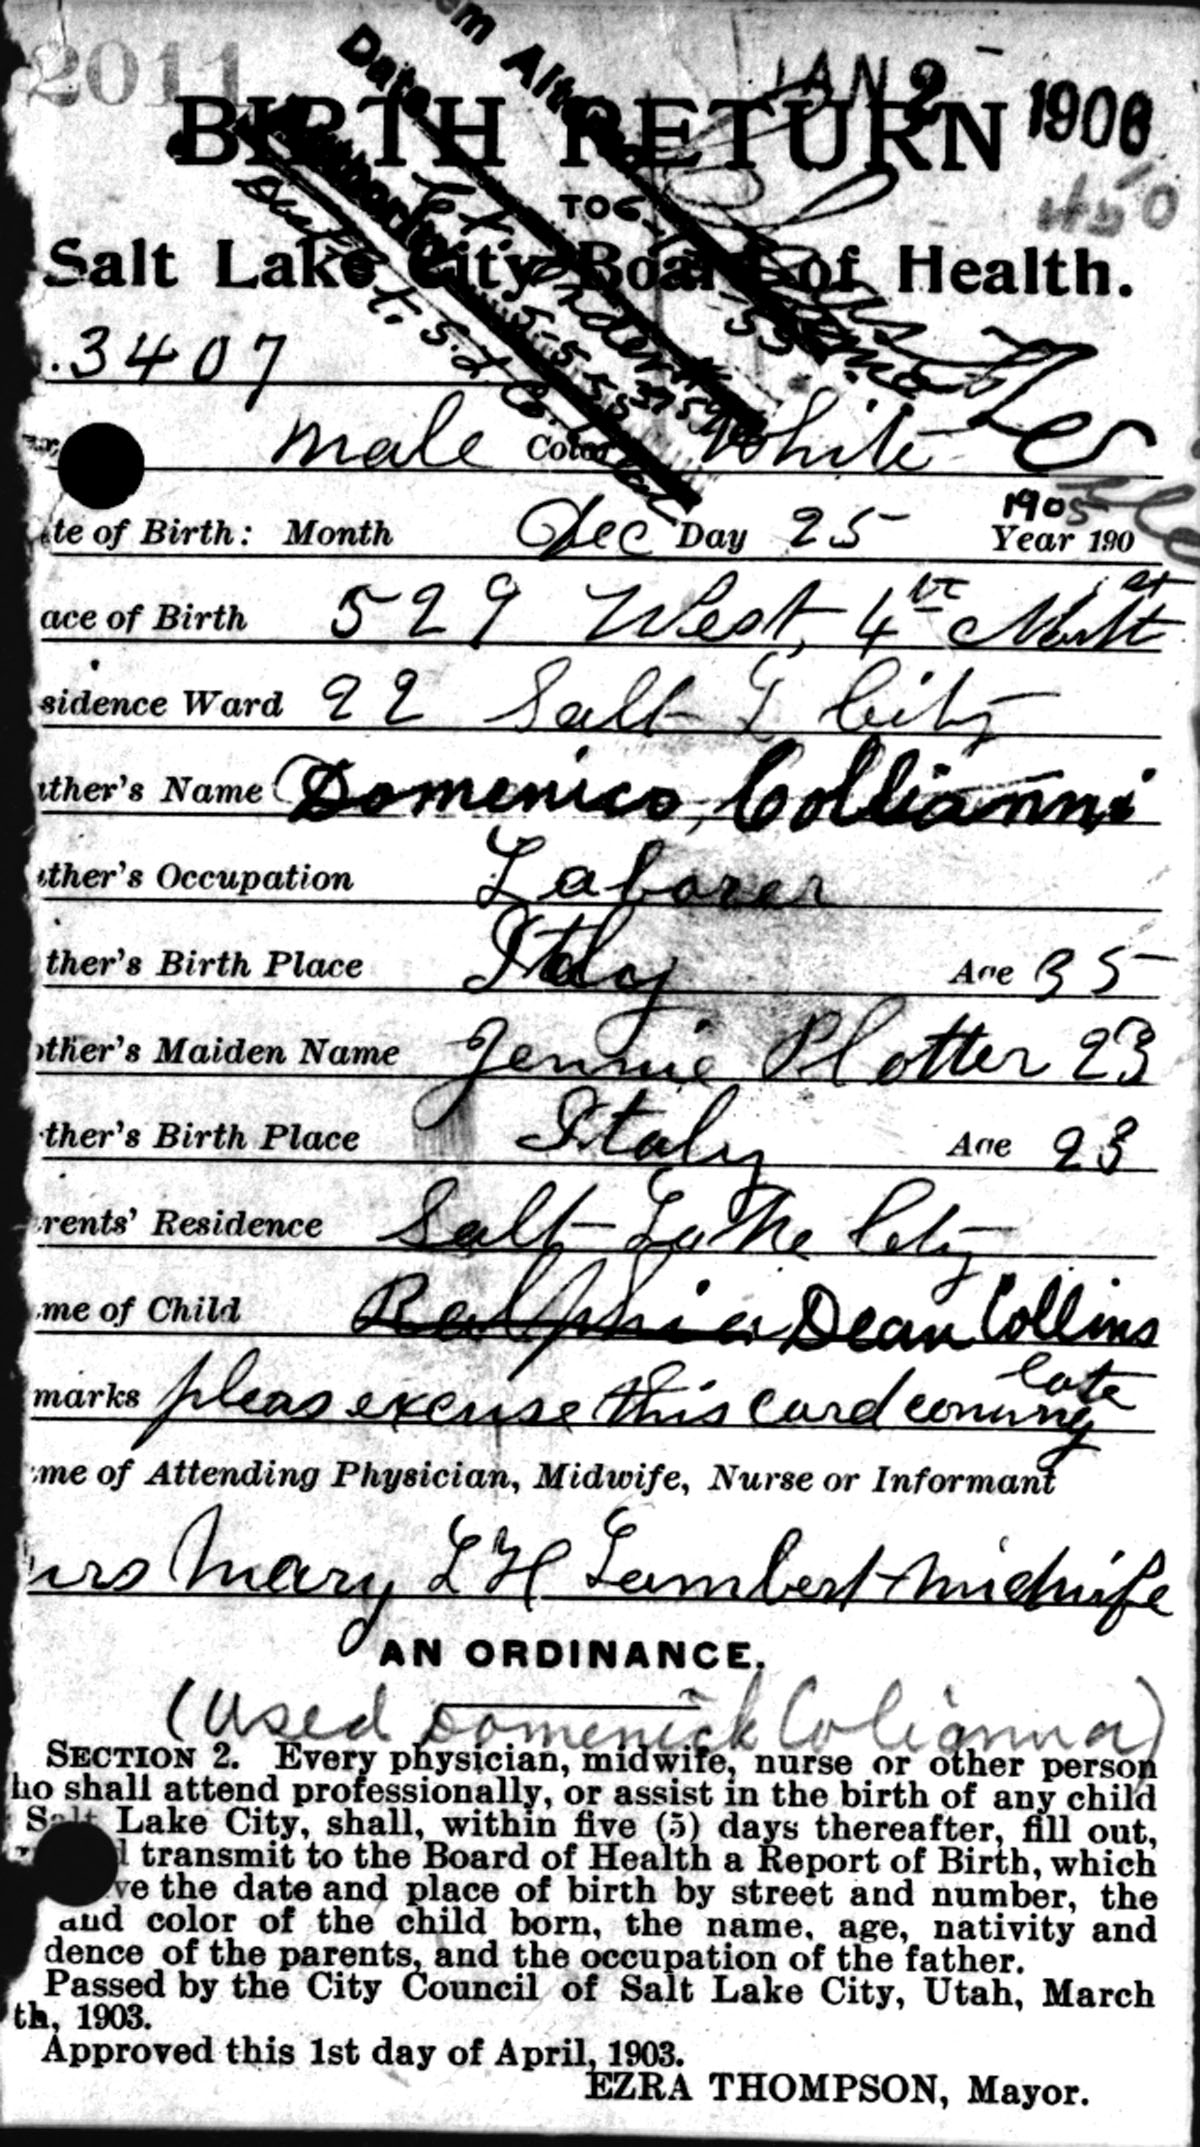 2011
JAN 2 - 1906
BIRTH RETURN
TO
450
Salt Lake City Board of Health.
.3407
male Color White
te of Birth: Month Dec Day 25 1905 Year 190
ace of Birth 529 West, 4th North st
sidence Ward 22 Salt L City
ther's Name Domenico, Collianni
ther's Occupation Laborer
ther's Birth Place Italy Age 35
other's Maiden Name Jennie Plotter 23
ther's Birth Place Italy Age 23
rents' Residence Salt Lake City
me of Child Ralphia Dean Collins
marks pleas excuse this card coming late
me of Attending Physician, Midwife, Nurse or Informant
urs Mary L H Lambert midwife
AN ORDINANCE.
(Used Domenick Colianna)
SECTION 2. Every physician, midwife, nurse or other person
ho shall attend professionally, or assist in the birth of any child
Salt Lake City, shall, within five (5) days thereafter, fill out,
transmit to the Board of Health a Report of Birth, which
ve the date and place of birth by street and number, the
and color of the child born, the name, age, nativity and
dence of the parents, and the occupation of the father.
Passed by the City Council of Salt Lake City, Utah, March
th, 1903.
Approved this 1st day of April, 1903.
EZRA THOMPSON, Mayor.